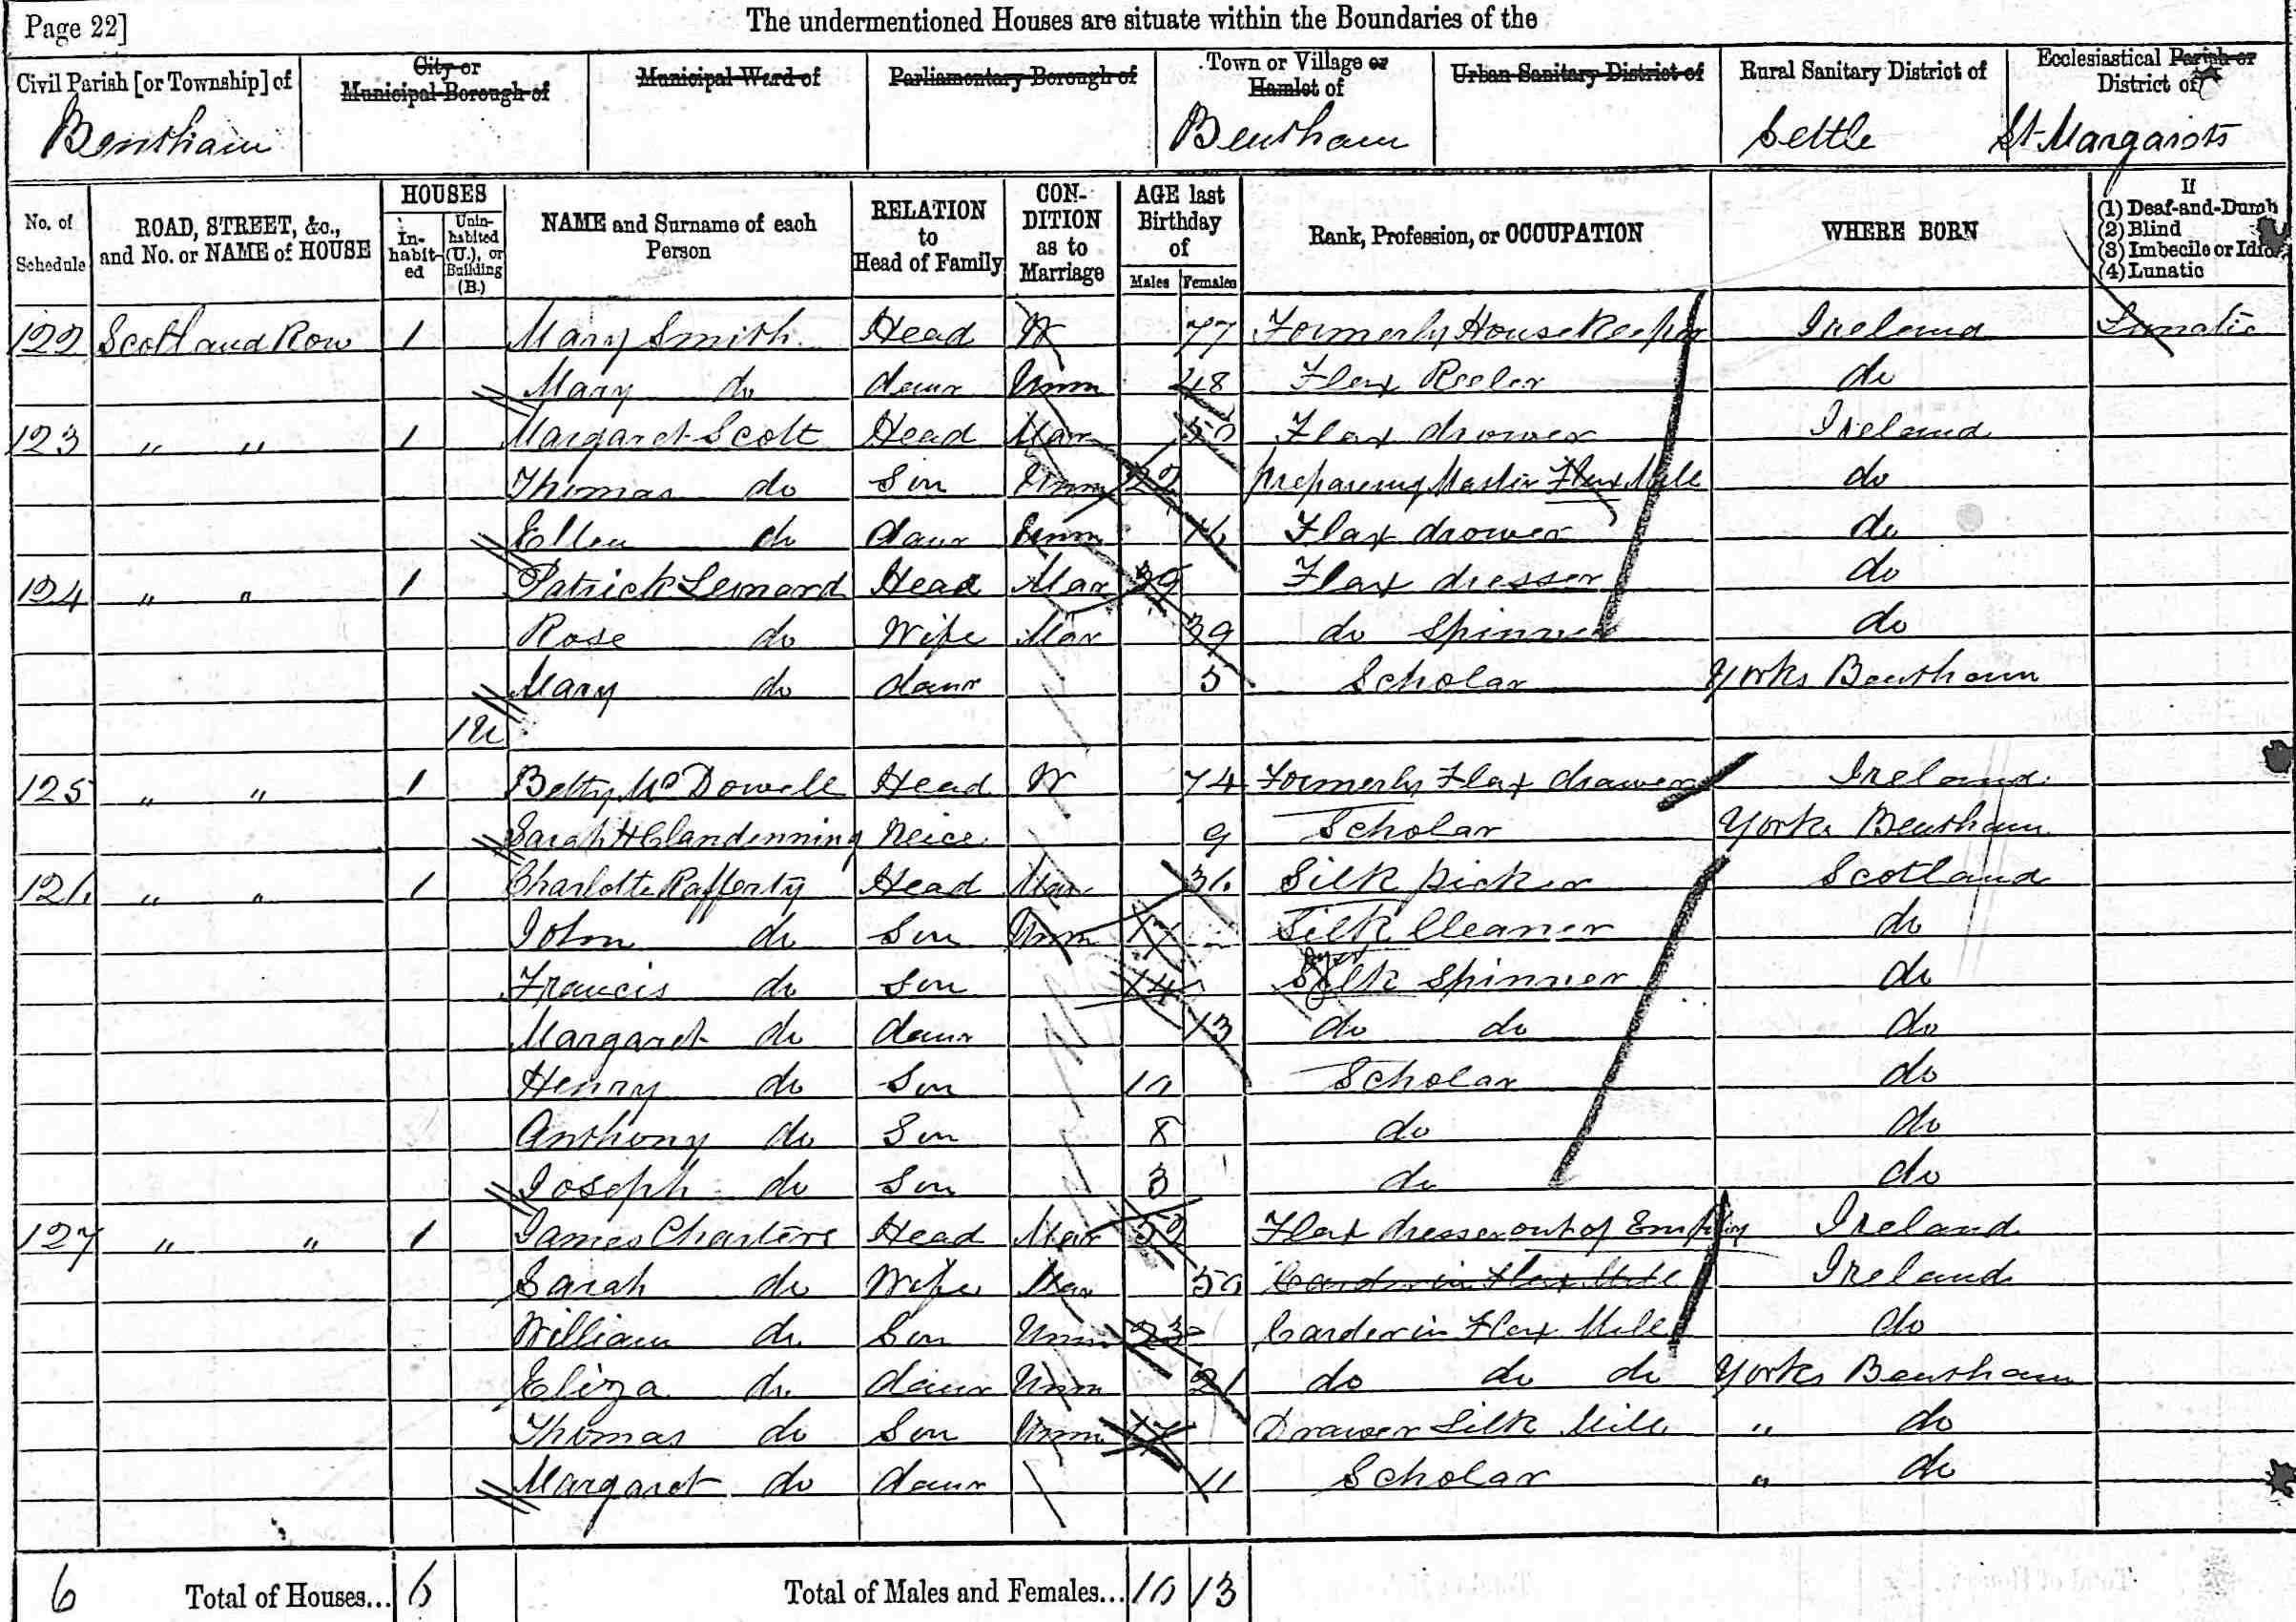 Page 22]
The undermentioned Houses are situate within the Boundaries of the
Civil Parish [or Township] of
City or Municipal Borough of
Municipal Ward of
Parliamentary Borough of
Town or Village or Hamlet of
Urban Sanitary District of
Rural Sanitary District of
Ecclesiastical Parish or District of
Bentham Bentham Settle St Margarets
No. of Schedule
ROAD, STREET, &c., and No. or NAME of HOUSE
HOUSES
In-habit-ed
Unin-habited (U.), or Building (B.)
NAME and Surname of each Person
RELATION to Head of Family
CON-DITION as to Marriage
AGE last Birthday of
Males Females
Rank, Profession, or OCCUPATION
WHERE BORN
If
(1) Deaf-and-Dumb
(2) Blind
(3) Imbecile or Idiot
(4) Lunatic
122 Scotland Row 1 Mary Smith Head W 77 Formerly House Keeper Ireland Lunatic
Mary do daur Unm 48 Flax Reeler do
123 " " 1 Margaret Scott Head Mar 50 Flax drower Ireland
Thomas do Son Unm 22 preparing Master Flax Mill do
Ellen do daur Unm 16 Flax drower do
124 " " 1 Patrick Lennard Head Mar Flax dresser do
Rose do Wife Mar 39 do spinner do
Mary do daur 5 Scholar Yorks Bentham
1U
125 " " 1 Betty McDowell Head W 74 Formerly Flax drawer Ireland
Sarah H Clandenning Neice 9 Scholar Yorks Bentham
126 " " 1 Charlotte Rafferty Head Mar 36 Silk picker Scotland
John do Son Unm 17 Silk Cleaner do
Francis do Son 14 Silk spinner do
Margaret do daur 13 do do do
Henry do Son 10 Scholar do
Anthony do Son 8 do do
Joseph do Son 3 do do
127 " " 1 James Charters Head Mar 50 Flax dresser out of Employ Ireland
Sarah do Wife Mar 50 Carder in Flax Mill Ireland
William do Son Unm 23 Carder in Flax Mill do
Eliza do daur Unm 21 do do do Yorks Bentham
Thomas do Son Unm 17 Drawer Silk Mill " do
Margaret do daur 11 Scholar " do
6 Total of Houses... 6 Total of Males and Females... 10 13